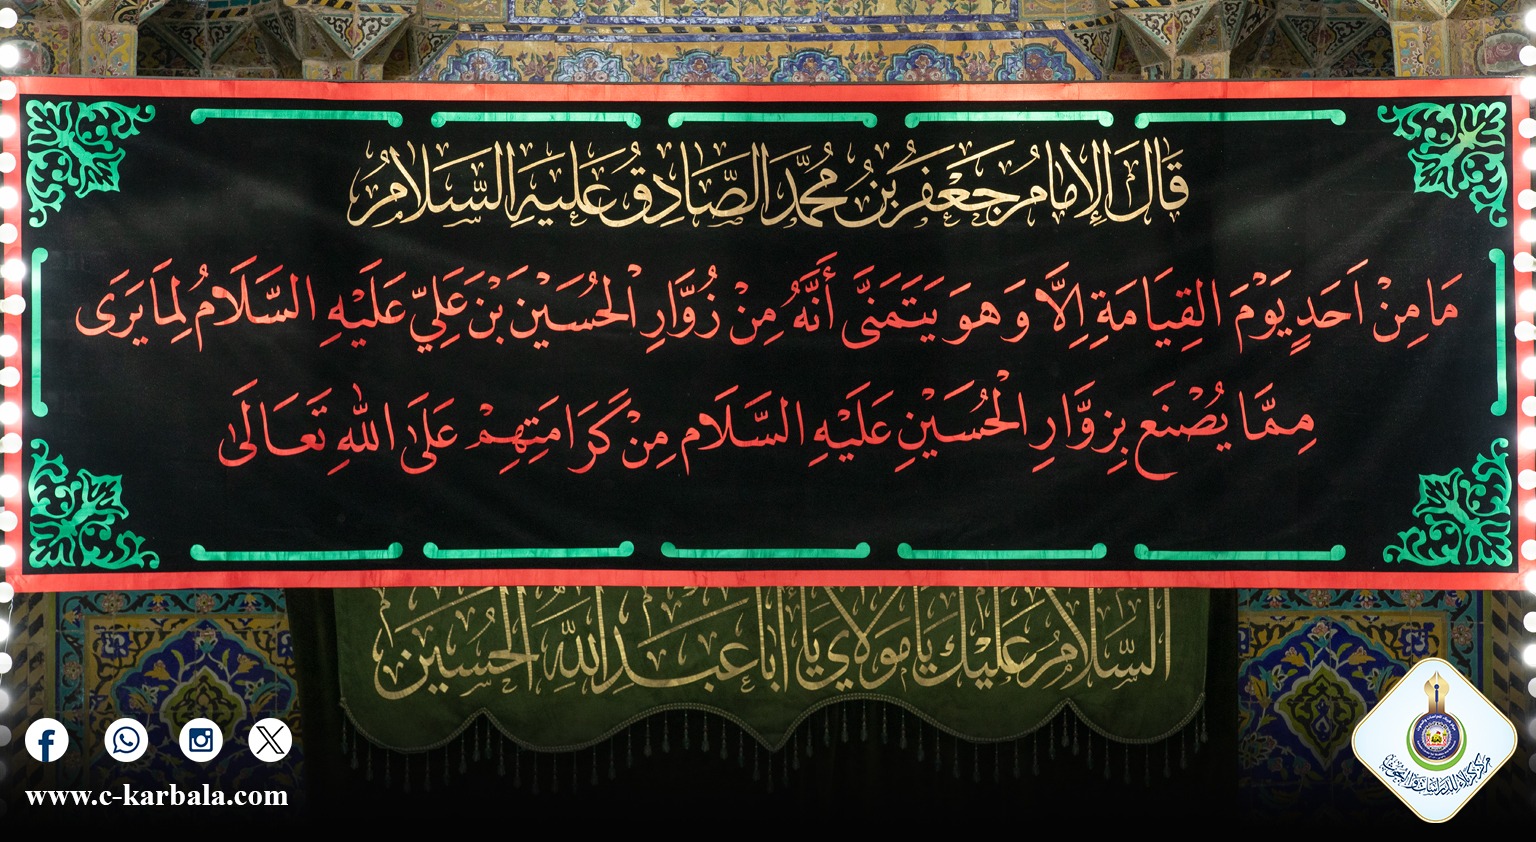 قَالَ الإِمَامُ جَعْفَرُ بْنُ مُحَمَّدٍ الصَّادِقُ عَلَيْهِ السَّلَامُ
مَا مِنْ اَحَدٍ يَوْمَ القِيَامَةِ اِلَّا وَ هوَ يَتَمَنَّى أَنَّهُ مِنْ زُوَّارِ الْحُسَيْن بْنَ عَلِيّ عَلَيْهِ السَّلَامُ لِمَا يَرَى
مِمَّا يُصْنَع بِزوَّارِ الْحُسَيْنِ عَلَيْهِ السَّلَام مِنْ كَرَامَتِهِمْ عَلَى اللّٰهِ تَعَالَى
السَّلَامُ عَلَيْكَ يَا مَوْلَايَ يَا أَبَا عَبْدِ اللّٰهِ الحُسَيْن
www.c-karbala.com
مركز كربلاء للدراسات والبحوث